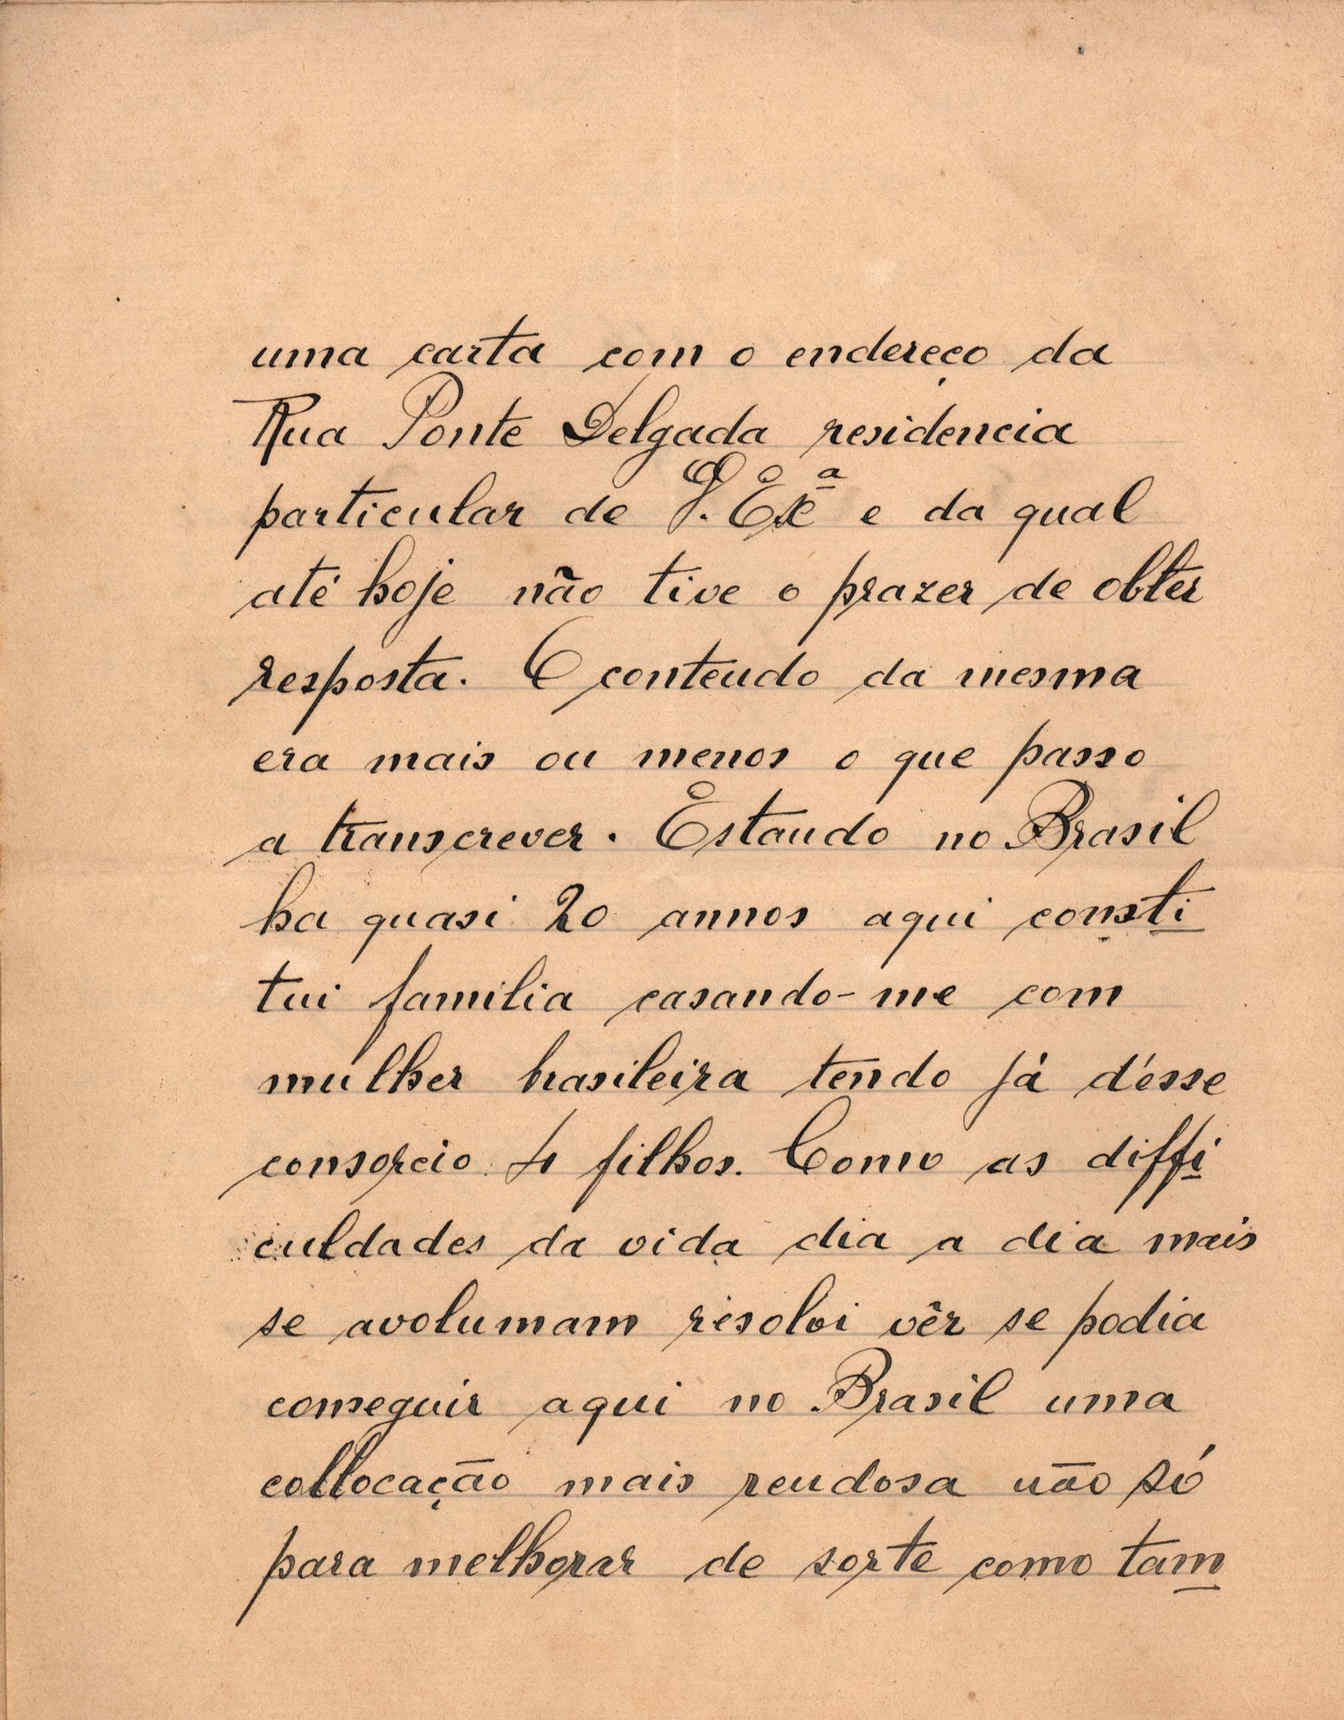 uma carta com o endereço da
Rua Ponte Delgada residencia
particular de V. Exª e da qual
até hoje não tive o prazer de obter
resposta. O conteudo da mesma
era mais ou menos o que passo
a transcrever. Estando no Brasil
ha quasi 20 annos aqui consti
tui familia casando-me com
mulher brasileira tendo já d'ésse
consorcio 4 filhos. Como as diffi
culdades da vida dia a dia mais
se avolumam resolvi vêr se podia
conseguir aqui no Brasil uma
collocação mais rendosa não só
para melhorar de sorte como tam